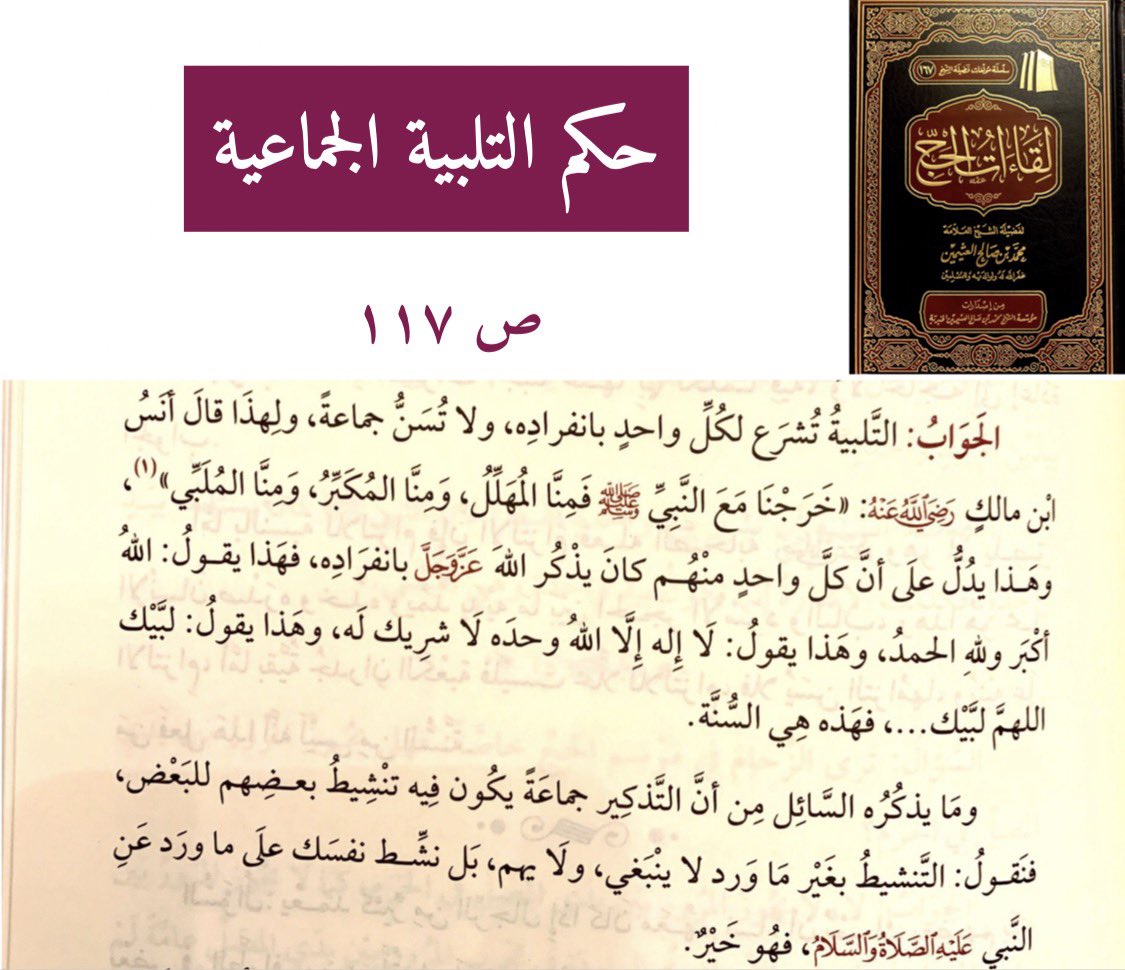 حكم التلبية الجماعية
ص ١١٧
سلسلة مؤلفات فضيلة الشيخ ١٦٧
لِقَاءَاتُ الحَجِّ
لفضيلة الشيخ العلامة
محمد بن صالح العثيمين
غفر الله له ولوالديه وللمسلمين
من إصدارات
مؤسسة الشيخ محمد بن صالح العثيمين الخيرية
الجَوَابُ: التَّلبيةُ تُشرَع لكُلِّ واحدٍ بانفرادِه، ولا تُسَنُّ جماعةً، ولِهذَا قالَ أنَسُ
ابْن مالكٍ رَضِيَ اللَّهُ عَنْهُ: «خَرَجْنَا مَعَ النَّبِيِّ ﷺ فَمِنَّا المُهَلِّلُ، وَمِنَّا المُكَبِّرُ، وَمِنَّا المُلَبِّي»(١)،
وهَـذا يدُلُّ علَى أنَّ كلَّ واحدٍ منْهُـم كانَ يذْكُر اللهَ عَزَّ وَجَلَّ بانفرَادِه، فهَذا يقـولُ: اللهُ
أكْبَر وللهِ الحمدُ، وهَذا يقولُ: لَا إِله إلَّا اللهُ وحدَه لَا شرِيك لَه، وهَذا يقولُ: لبَّيْك
اللهمَّ لبَّيْك...، فهَذه هِي السُّنَّة.
ومَا يذكُرُه السَّائِل مِن أنَّ التَّذكِير جماعَةً يكُون فِيه تنْشِيطُ بعـضِهم للبَعْض،
فنَقـولُ: التَّنشيطُ بغَيْر مَا وَرد لا ينْبَغي، ولَا يهم، بَل نشِّـط نفسَك علَى ما ورَد عَنِ
النَّبي عَلَيْهِ الصَّلَاةُ وَالسَّلَامُ، فهُو خَيْرٌ.